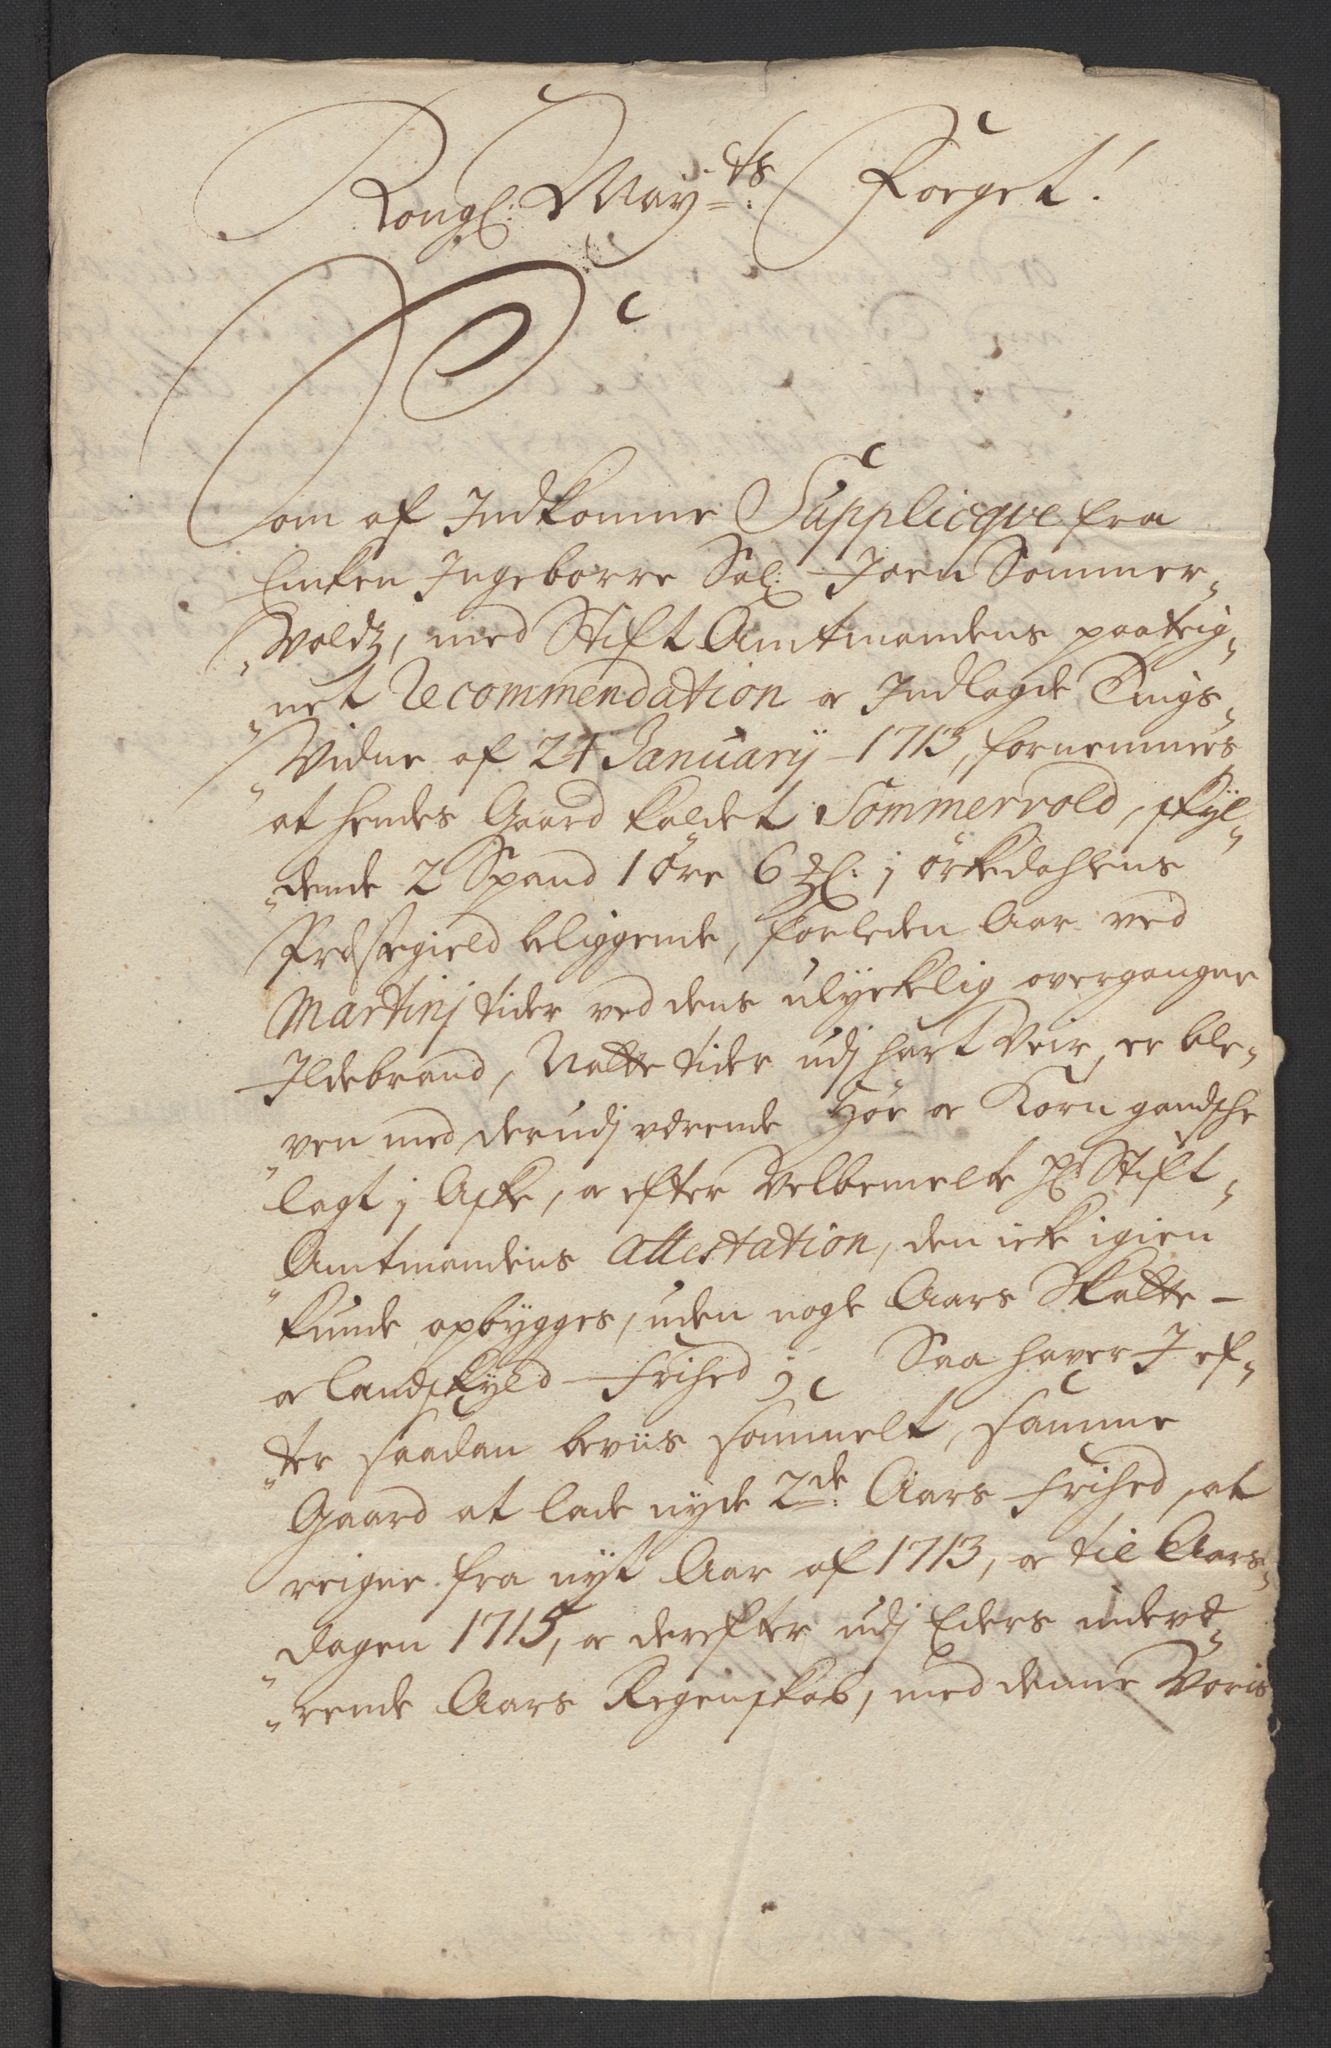 Kongl: May:ts Foeget!
Som af Indkomne Supplicqve fra
Enken Ingeborre Sal: Joen Sommer-
Voldz, med Stift Amtmandens paateig-
net Recommendation og Indlagde Tings-
Vidne af 24 January 1713, fornemmes
at hendes Gaard kaldet Sommervold, skyl-
dende 2 Spand 1 Øre 6 Mkl: j Ørkedahlens
Prestegield beliggende, forleden Aar ved
Martinj tider ved dens ulyckelig overgangne
Ildebrand, Natte tider udj hart Veir, er ble-
ven med derudj værende Høe og Korn gandsche
lagt j Aske, og efter Velbemelte Hr Stift-
Amtmandens Attestation, den icke igien
kunde opbygges, uden nogle Aars Skatte-
og Landskyld-Frihed; Saa haver I ef-
ter saadan beviis sommelt, samme
Gaard at lade nyde 2de: Aars Frihed, at
reigne fra nyt Aar af 1713, og til Aars-
dagen 1715, og derefter udj Eders indevæ-
rende Aars Regenskab, med denne Voris